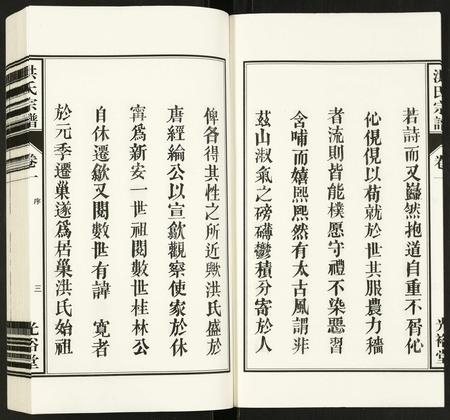 洪氏宗譜
卷一
光裕堂
若詩而又巋然抱道自重不屑仳
仳俔俔以苟就於世其服農力穡
者流則皆能樸愿守禮不染惡習
含哺而嬉熙熙然有太古風謂非
茲山淑氣之磅礴鬱積分寄於人
俾各得其性之所近歟洪氏盛於
唐經綸公以宣歙觀察使家於休
甯爲新安一世祖閱數世桂林公
自休遷歙又閱數世有諱寬者
於元季遷巢遂爲居巢洪氏始祖
洪氏宗譜
卷一
序
三
光裕堂